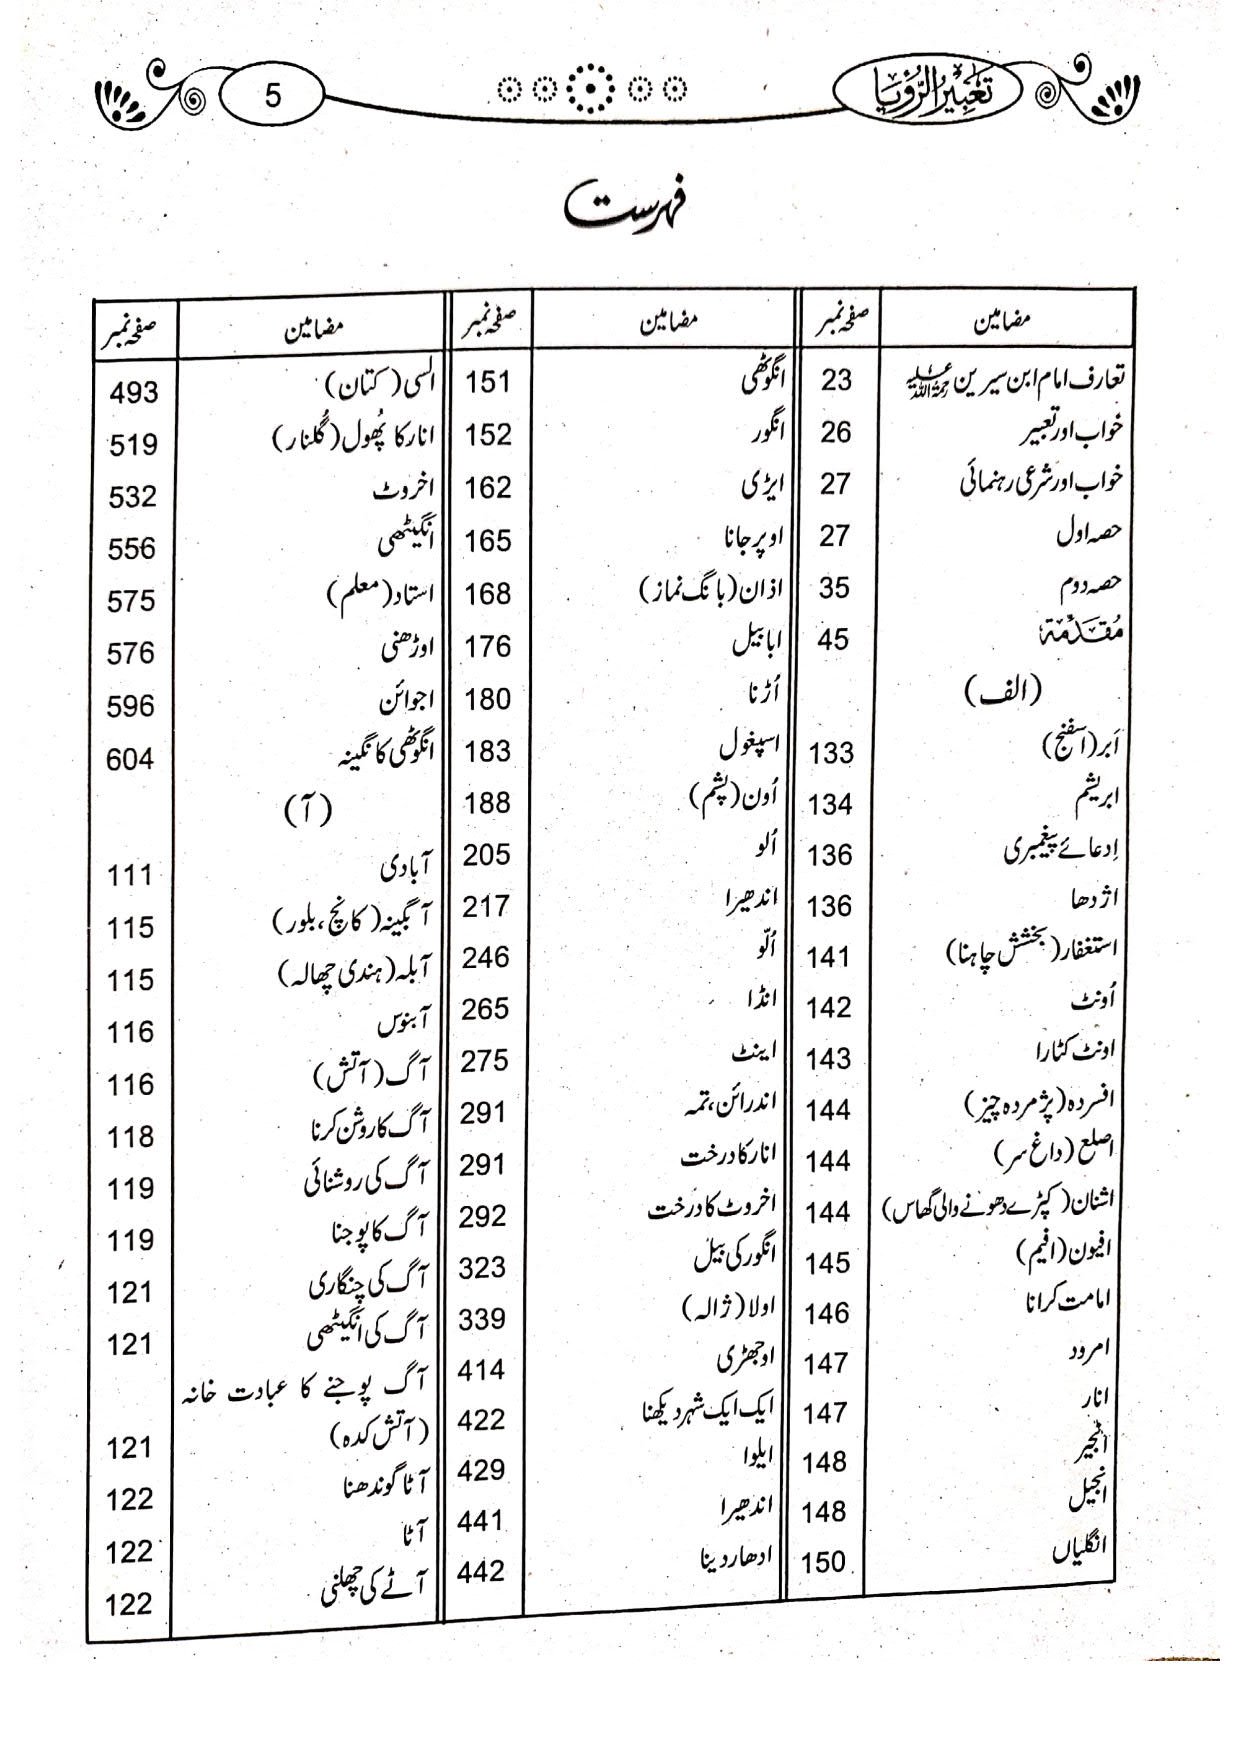 5
تعبیر الرؤیا
فہرست
مضامین صفحہ نمبر
تعارف امام ابن سیرین رحمۃ اللہ علیہ 23
خواب اور تعبیر 26
خواب اور شرعی رہنمائی 27
حصہ اول 27
حصہ دوم 35
مُقَدِّمَة 45
(الف)
اَبر (اسفنج) 133
ابریشم 134
اِدعائے پیغمبری 136
اژدھا 136
استغفار (بخشش چاہنا) 141
اُونٹ 142
اونٹ کٹارا 143
افسردہ (پژمردہ چیز) 144
اصلع (داغ سر) 144
اشنان (کپڑے دھونے والی گھاس) 144
افیون (افیم) 145
امامت کرانا 146
امرود 147
انار 147
انجیر 148
انجیل 148
انگلیاں 150
مضامین صفحہ نمبر
انگوٹھی 151
انگور 152
ایڑی 162
اوپر جانا 165
اذان (بانگ نماز) 168
ابابیل 176
اُڑنا 180
اسپغول 183
اُون (پشم) 188
اُلو 205
اندھیرا 217
اُلّو 246
انڈا 265
اینٹ 275
اندرائن، تمہ 291
انار کا درخت 291
اخروٹ کا درخت 292
انگور کی بیل 323
اولا (ژالہ) 339
اوجھڑی 414
ایک ایک شہر دیکھنا 422
ایلوا 429
اندھیرا 441
ادھار دینا 442
مضامین صفحہ نمبر
السی (کتان) 493
انار کا پُھول (گُلنار) 519
اخروٹ 532
انگیٹھی 556
استاد (معلم) 575
اوڑھنی 576
اجوائن 596
انگوٹھی کا نگینہ 604
(آ)
آبادی 111
آبگینہ (کانچ، بلور) 115
آبلہ (ہندی چھالہ) 115
آبنوس 116
آگ (آتش) 116
آگ کا روشن کرنا 118
آگ کی روشنائی 119
آگ کا پوجنا 119
آگ کی چنگاری 121
آگ کی انگیٹھی 121
آگ پوجنے کا عبادت خانہ
(آتش کدہ) 121
آٹا گوندھنا 122
آٹا 122
آٹے کی چھلنی 122